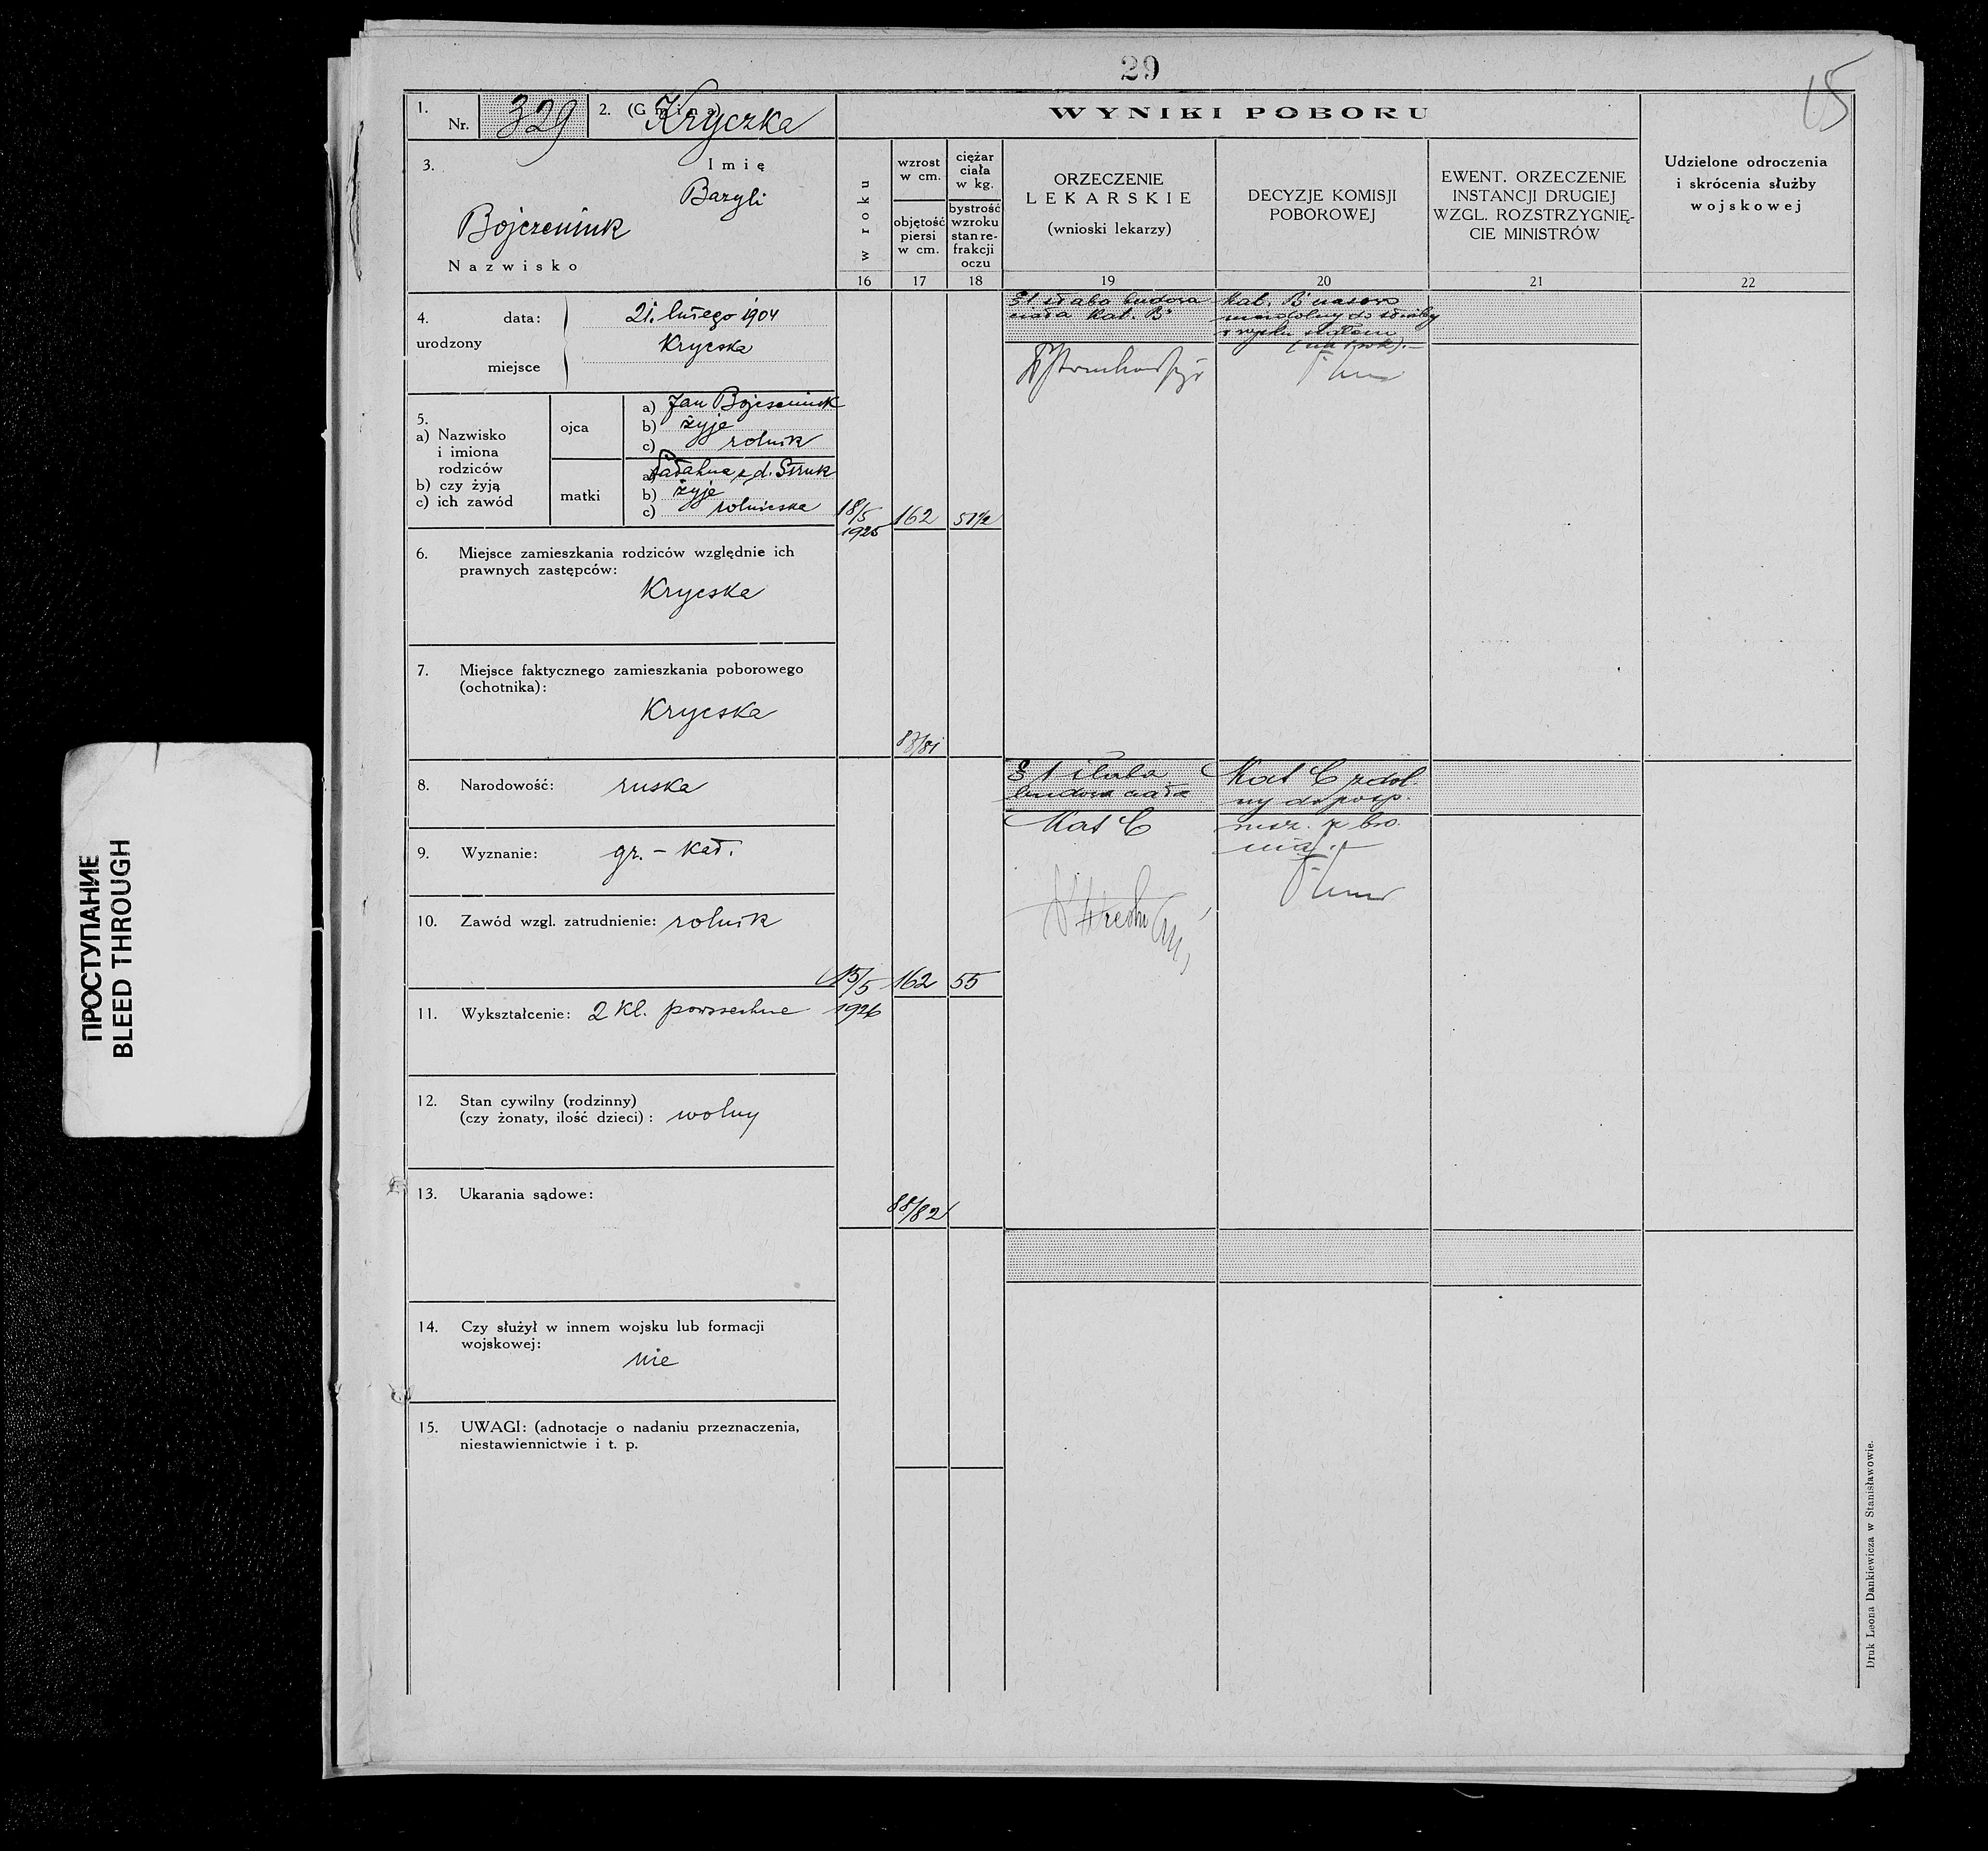 29
15
1. Nr. 329 2. (Gmina) Kryczka
WYNIKI POBORU
3. Imię
Bazyli
Bojczeniuk
Nazwisko
w roku
wzrost w cm.
objętość piersi w cm.
ciężar ciała w kg.
bystrość wzroku stan refrakcji oczu
ORZECZENIE
LEKARSKIE
(wnioski lekarzy)
DECYZJE KOMISJI
POBOROWEJ
EWENT. ORZECZENIE
INSTANCJI DRUGIEJ
WZGL. ROZSTRZYGNIĘ-
CIE MINISTRÓW
Udzielone odroczenia
i skrócenia służby
wojskowej
16 17 18 19 20 21 22
4. urodzony
data: 21. lutego 1904
miejsce Krycska
5.
a) Nazwisko
i imiona
rodziców
b) czy żyją
c) ich zawód
ojca
a) Jan Bojczeniuk
b) żyje
c) rolnik
matki
a) z d. Struk
b) żyje
c) rolniczka
6. Miejsce zamieszkania rodziców względnie ich
prawnych zastępców:
Krycska
7. Miejsce faktycznego zamieszkania poborowego
(ochotnika):
Krycska
8. Narodowość: ruska
9. Wyznanie: gr. - kat.
10. Zawód wzgl. zatrudnienie: rolnik
11. Wykształcenie: 2 kl. powszechne
12. Stan cywilny (rodzinny)
(czy żonaty, ilość dzieci) : wolny
13. Ukarania sądowe:
14. Czy służył w innem wojsku lub formacji
wojskowej:
nie
15. UWAGI: (adnotacje o nadaniu przeznaczenia,
niestawiennictwie i t. p.
18/5
1925
162
51½
§ 1 słabo budowa
ciała Kat. B
Kat. B czasowo
niezdolny do służby
(na 1 rok).-
15/5
1926
162
55
88/82
§ 1
budowa ciała
Kat C
Kat C zdol-
ny do posp.
rusz. z bro-
nią.-
Druk Leona Dankiewicza w Stanisławowie.
ПРОСТУПАНИЕ
BLEED THROUGH